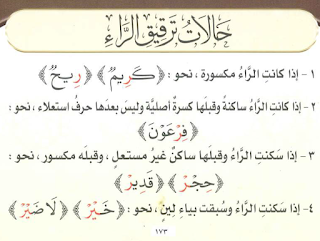 حَالَاتُ تَرْقِيقِ الرَّاءِ
١ - إذا كانتِ الرَّاءُ مكسورة، نحو: ﴿كَرِيمٌ﴾ ﴿رِيحٌ﴾
٢- إذا كانت الرَّاءُ ساكنةً وقبلَها كسرةٌ أصليَّةٌ وليسَ بعدَها حرفُ استعلاء، نحو:
﴿فِرْعَوْنَ﴾
٣ - إذا سَكنتِ الرَّاءُ وقبلَها ساكنٌ غيرُ مستعلٍ، وقبلَه مكسور، نحو:
﴿حِجْرٌ﴾ ﴿قَدِيرٌ﴾
٤- إذا سَكنتِ الرَّاءُ وسُبقت بياءِ لينٍ، نحو: ﴿خَيْرٌ﴾ ﴿لَا ضَيْرَ﴾
١٧٣